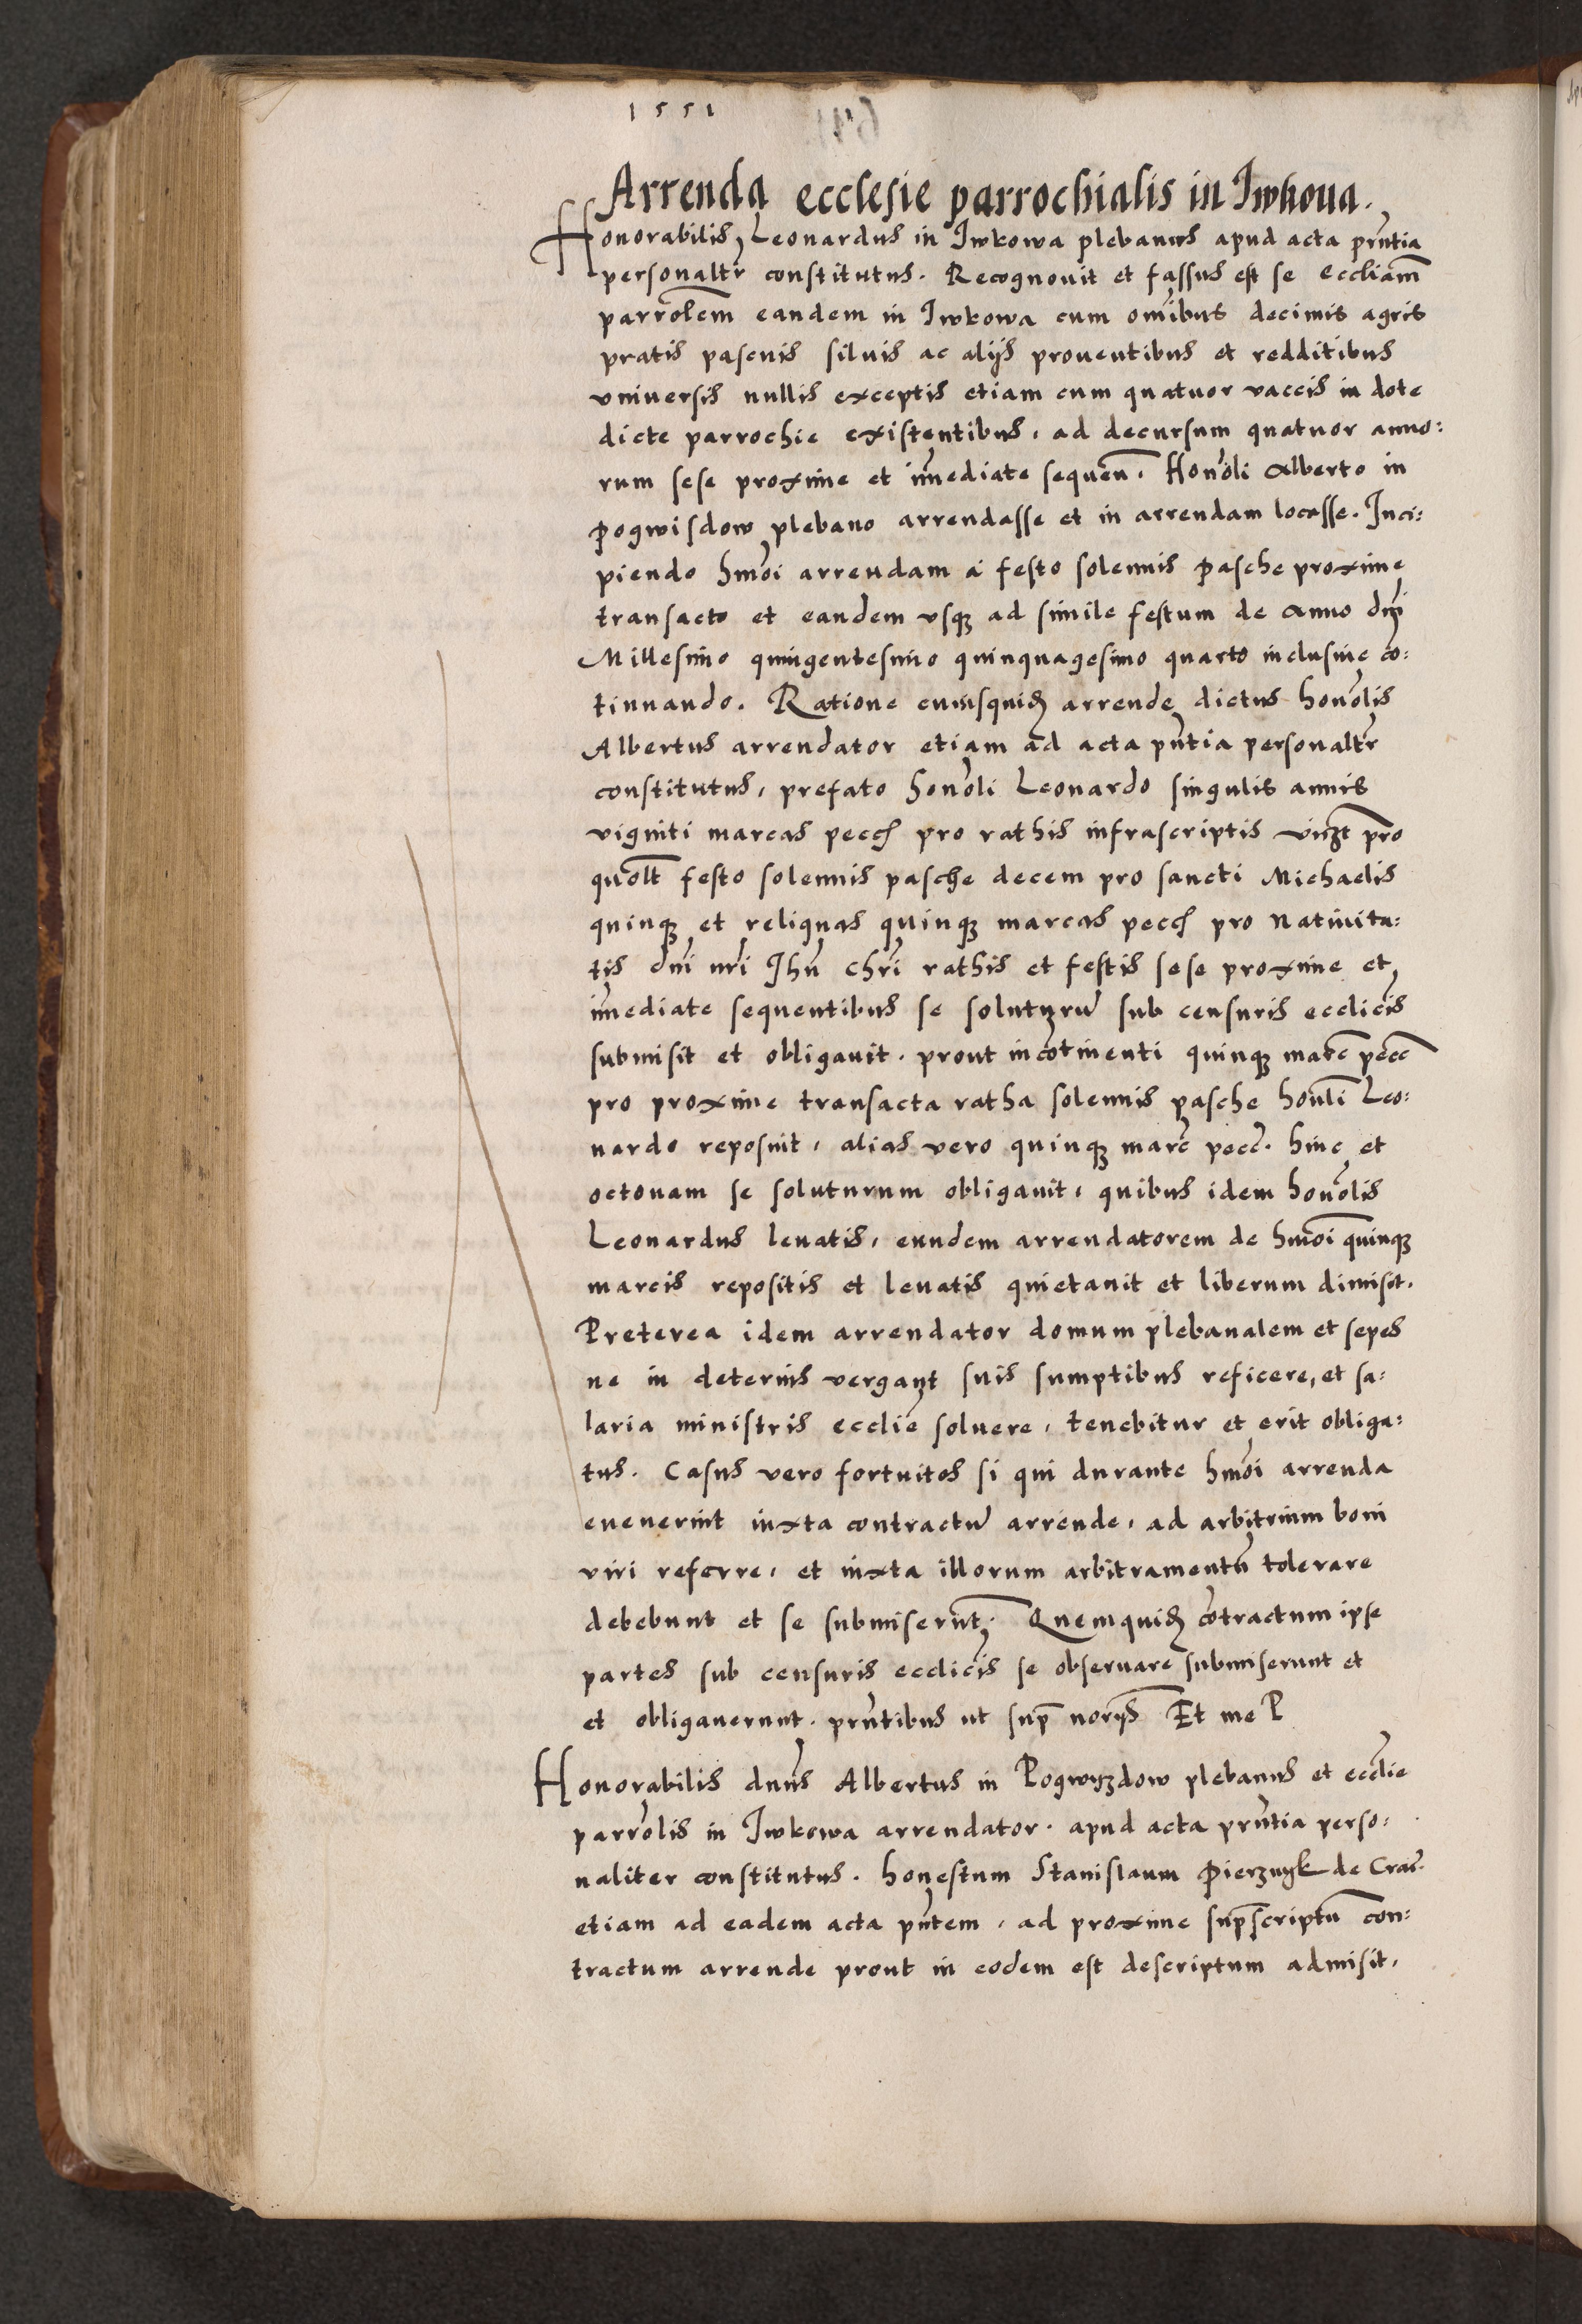 1551
Arrenda ecclesie parrochialis in Iwkoua.
Honorabilis Leonardus in Iwkowa plebanus apud acta prñtia
personaltr̃ constitutus. Recognouit et fassus est se eccliam̃
parrolem̃ eandem in Iwkowa cum om̃ibus decimis agris
pratis pascuis siluis ac alijs prouentibus et redditibus
vniuersis nullis exceptis etiam cum quatuor vaccis in dote
dicte parrochie existentibus, ad decursum quatuor anno:
rum sese proxime et im̃ediate sequeñ. Honoli Alberto in
Pogwisdow plebano arrendasse et in arrendam locasse. Inci:
piendo hmõi arrendam a festo solennis Pasche proxime
transacto et eandem vsq3 ad simile festum de Anno dni
Millesimo quingentesimo quinquagesimo quarto inclusiue cõ:
tinuando. Ratione cuiusquid3 arrende dictus honolis
Albertus arrendator etiam ad acta pñtia personaltr̃
constitutus, prefato honoli Leonardo singulis annis
viginti marcas pecc̃ pro rathis infrascriptis vic3t pro
quolt̃ festo solennis pasche decem pro sancti Michaelis
quinq3 et reliquas quinq3 marcas pecc̃ pro natiuita:
tis dni nri Ihu chri rathis et festis sese proxime et
im̃ediate sequentibus se soluturũ sub censuris ecclicis
submisit et obligauit. prout incõtinenti quinq3 marc̃ pecc̃
pro proxime transacta ratha solennis pasche honli Leo:
nardo reposuit, alias vero quinq3 marc̃ pecc̃. hinc et
octouam se soluturum obligauit, quibus idem honolis
Leonardus leuatis, eundem arrendatorem de hmõi quinq3
marcis repositis et leuatis quietauit et liberum dimisit.
Preterea idem arrendator domum plebanalem et sepes
ne in deterius vergant suis sumptibus reficere, et sa:
laria ministris ecclie soluere, tenebitur et erit obliga:
tus. Casus vero fortuitos si qui durante hmõi arrenda
euenerint iuxta contractũ arrende, ad arbitrium boni
viri referre, et iuxta illorum arbitramentũ tolerare
debebunt et se submiserũt. Quemquid3 cõtractum ipse
partes sub censuris ecclicis se obseruare submiserunt et
et obligauerunt. prñtibus ut sup̃ norijs Et me P
Honorabilis dnus Albertus in Pogwyzdow plebanus et ecclie
parrolis in Iwkowa arrendator. apud acta prñtia perso:
naliter constitutus. honestum Stanislaum Pierznyk de Crac̃.
etiam ad eadem acta pñtem, ad proxime sup̃scriptũ con:
tractum arrende prout in eodem est descriptum admisit,